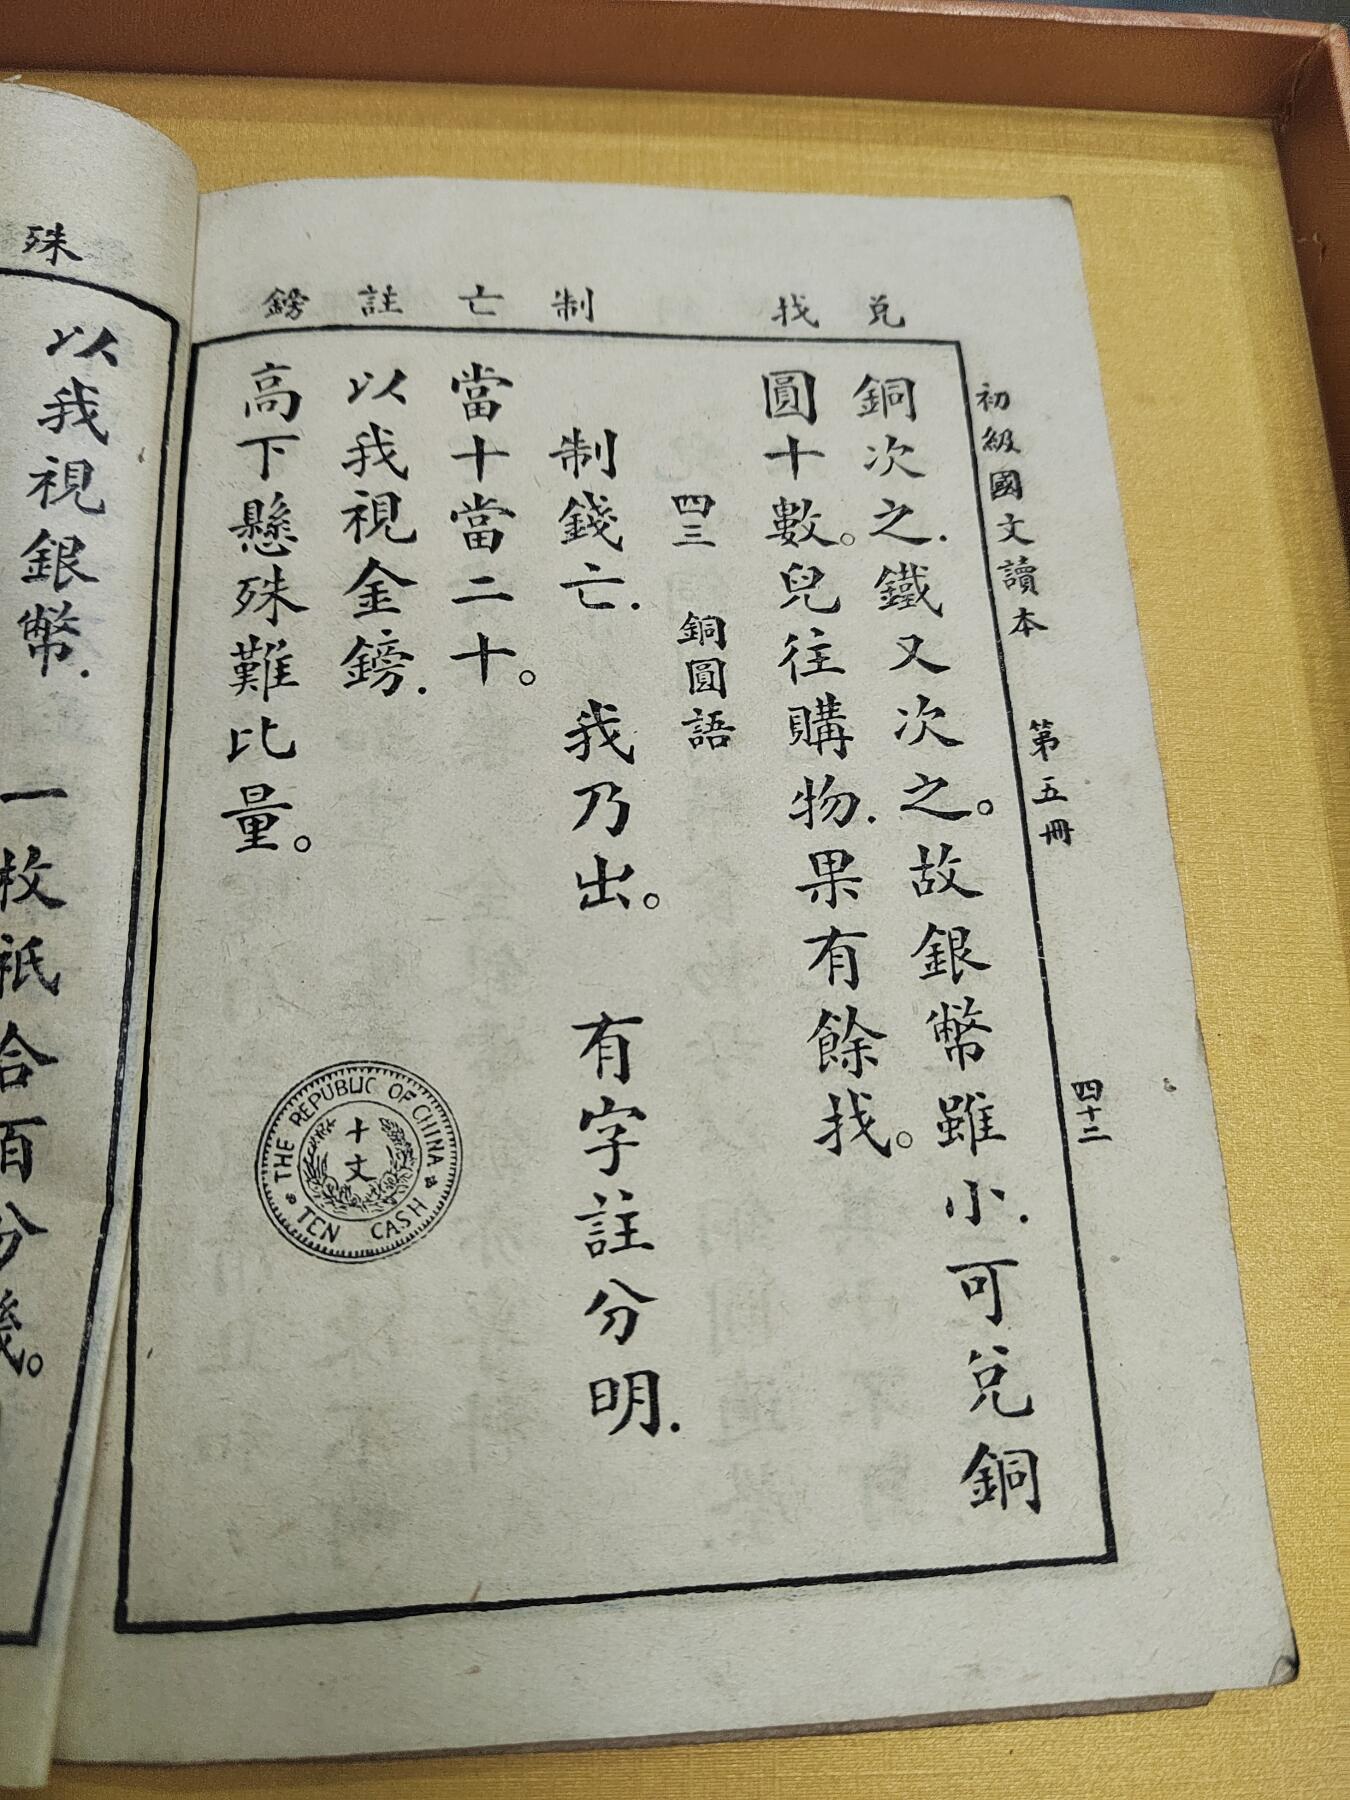 初級國文讀本 第五冊 四十二
兌 找 制 亡 註 鎊
銅次之.鐵又次之。故銀幣雖小.可兌銅
圓十數。兒往購物.果有餘找。
四三 銅圓語
制錢亡. 我乃出。 有字註分明.
當十當二十。
以我視金鎊.
高下懸殊難比量。
THE REPUBLIC OF CHINA
十文
TEN CASH
殊
以我視銀幣. 一枚祇合百分幾。